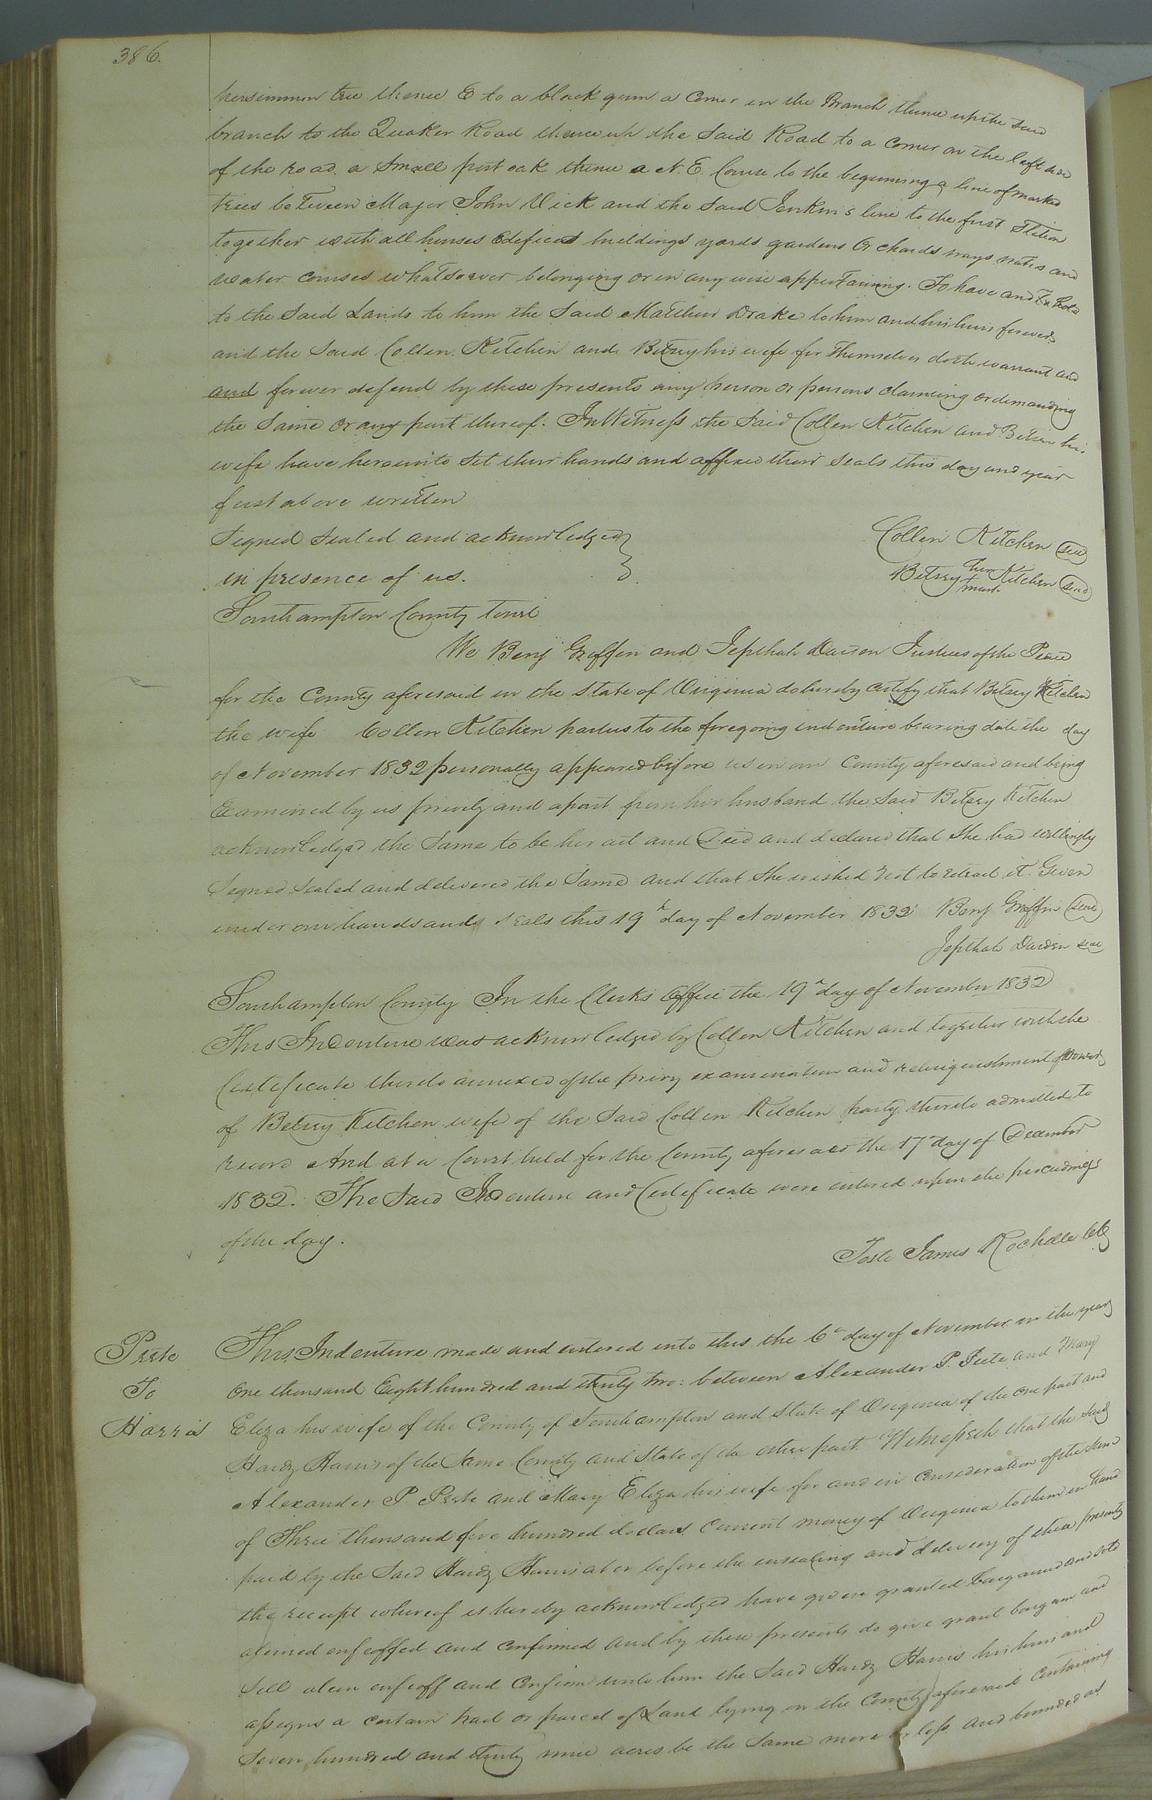 386.
persimmon tree thence E to a black gum a corner in the Branch thence up the said
branch to the Quaker Road thence up the Said Road to a corner on the left side
of the road a Small post oak thence a N. E. Course to the beginning a line of marked
trees between Major John Vick and the Said Jenkins line to the first Station
together with all houses edifices buildings yards gardens Orchards ways waters and
water courses whatsoever belonging or in any wise appertaining. To have and To hold
to the Said Lands to him the Said Matthew Drake to him and his heirs forever
and the Said Collen Kitchen and Betsey his wife for themselves doth warrant and
and forever defend by these presents any person or persons claiming or demanding
the Same or any part thereof. In Witness the Said Collen Kitchen and Betsey his
wife have hereunto Set their hands and affixed their Seals this day and year
first above written
Signed Sealed and acknowledged
in presence of us.
Collen Kitchen seal
Betsey her mark Kitchen seal
Southampton County Towit
We Benj Griffin and Jepthah Darden Justices of the Peace
for the County aforesaid in the State of Virginia do hereby certify that Betsey Kitchen
the wife Collen Kitchen parties to the foregoing indenture bearing date the day
of November 1832 personally appeared before us in our County aforesaid and being
Examined by us privily and apart from her husband the Said Betsey Kitchen
acknowledged the Same to be her act and Deed and declared that She had willingly
Signed Sealed and delivered the Same and that She wished not to retract it Given
under our hands and seals this 19th day of November 1832 Benj Griffin seal
Jepthah Darden seal
Southampton County In the Clerks Office the 19th day of November 1832
This Indenture was acknowledged by Collen Kitchen and together with the
Certificate thereto annexed of the privy examination and relinquishment of dower
of Betsey Kitchen wife of the Said Collen Kitchen party thereto admitted to
record And at a Court held for the County aforesaid the 17th day of December
1832. The Said Indenture and Certificate were entered upon the proceedings
of the day.
Teste James Rochelle Clk
Peete
To
Harris
This Indenture made and entered into this the 6th day of November in the year
One thousand Eight hundred and thirty two: between Alexander P. Peete and Mary
Eliza his wife of the County of Southampton and State of Virginia of the one part and
Hardy Harris of the Same County and State of the other part Witnesseth that the Said
Alexander P Peete and Mary Eliza his wife for and in Consideration of the Sum
of Three thousand five hundred dollars Current money of Virginia to them in hand
paid by the Said Hardy Harris at or before the ensealing and delivery of these presents
the receipt whereof is hereby acknowledged have given granted bargained and sold
aliened enfeoffed and Confirmed and by these presents do give grant bargain and
Sell alien enfeoff and Confirm unto him the Said Hardy Harris his heirs and
assigns a certain tract or parcel of Land lying in the County aforesaid Containing
Seven hundred and thirty nine acres be the Same more or less and bounded as